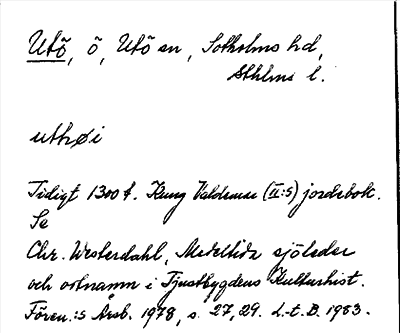 Utö, ö, Utö sn, Sotholms hd,
Sthlms l.
uthøi
Tidigt 1300 t. Kung Valdemar (II:s) jordebok.
Se
Chr. Westerdahl, Medeltida sjöleder
och ortnamn i Tjustbygdens Kulturhist.
Fören.:s Årsb. 1978, s. 27,29. L-t. B. 1983.